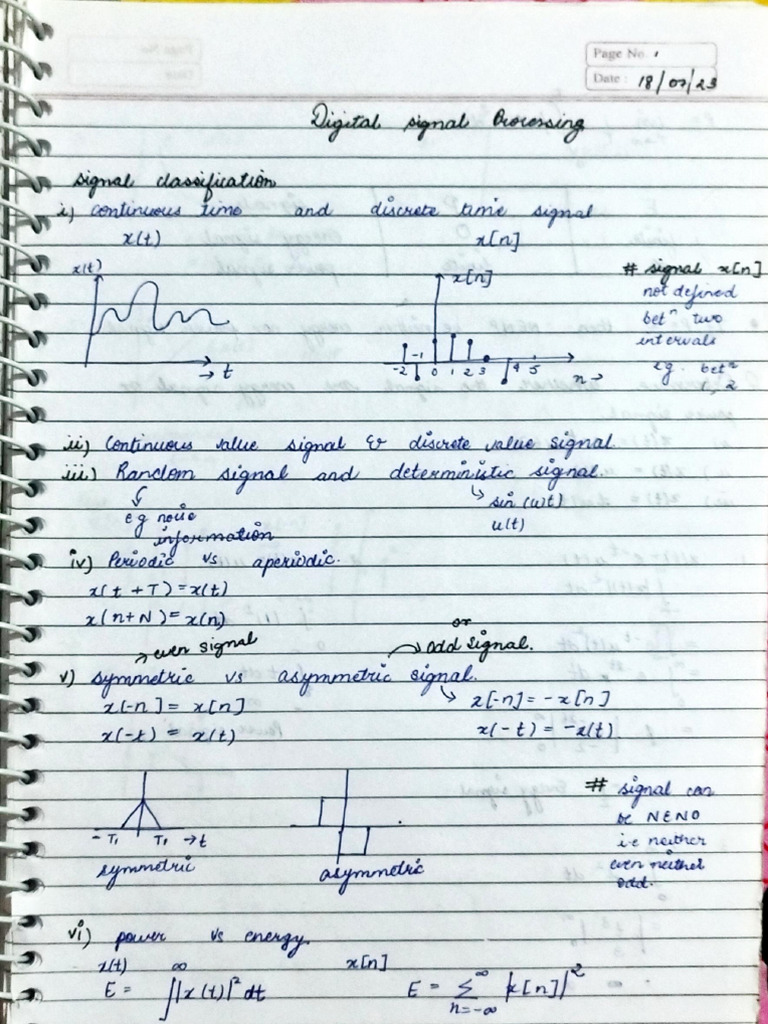 Page No. 1
Date: 18/07/23
Digital signal Processing
signal classification
i) continuous time and discrete time signal
x(t) x[n]
x(t)
→ t
x[n]
-2 -1 0 1 2 3 4 5 n→
# signal x[n]
not defined
betⁿ two
intervals
eg. betⁿ
1, 2
ii) Continuous value signal & discrete value signal.
iii) Random signal and deterministic signal.
eg noise
information
↳ sin(ωt)
u(t)
iv) Periodic vs aperiodic.
x(t + T) = x(t)
x(n+N) = x(n)
→ even signal
or
→ odd signal.
v) symmetric vs asymmetric signal.
x[-n] = x[n] ↳ x[-n] = -x[n]
x(-t) = x(t) x(-t) = -x(t)
-T₁ T₁ → t
symmetric asymmetric
# signal can
be NENO
i.e neither
even neither
odd.
vi) power vs energy.
x(t) x[n]
E = ∫^∞ |x(t)|² dt E = ∑_{n=-∞}^{∞} |x[n]|²